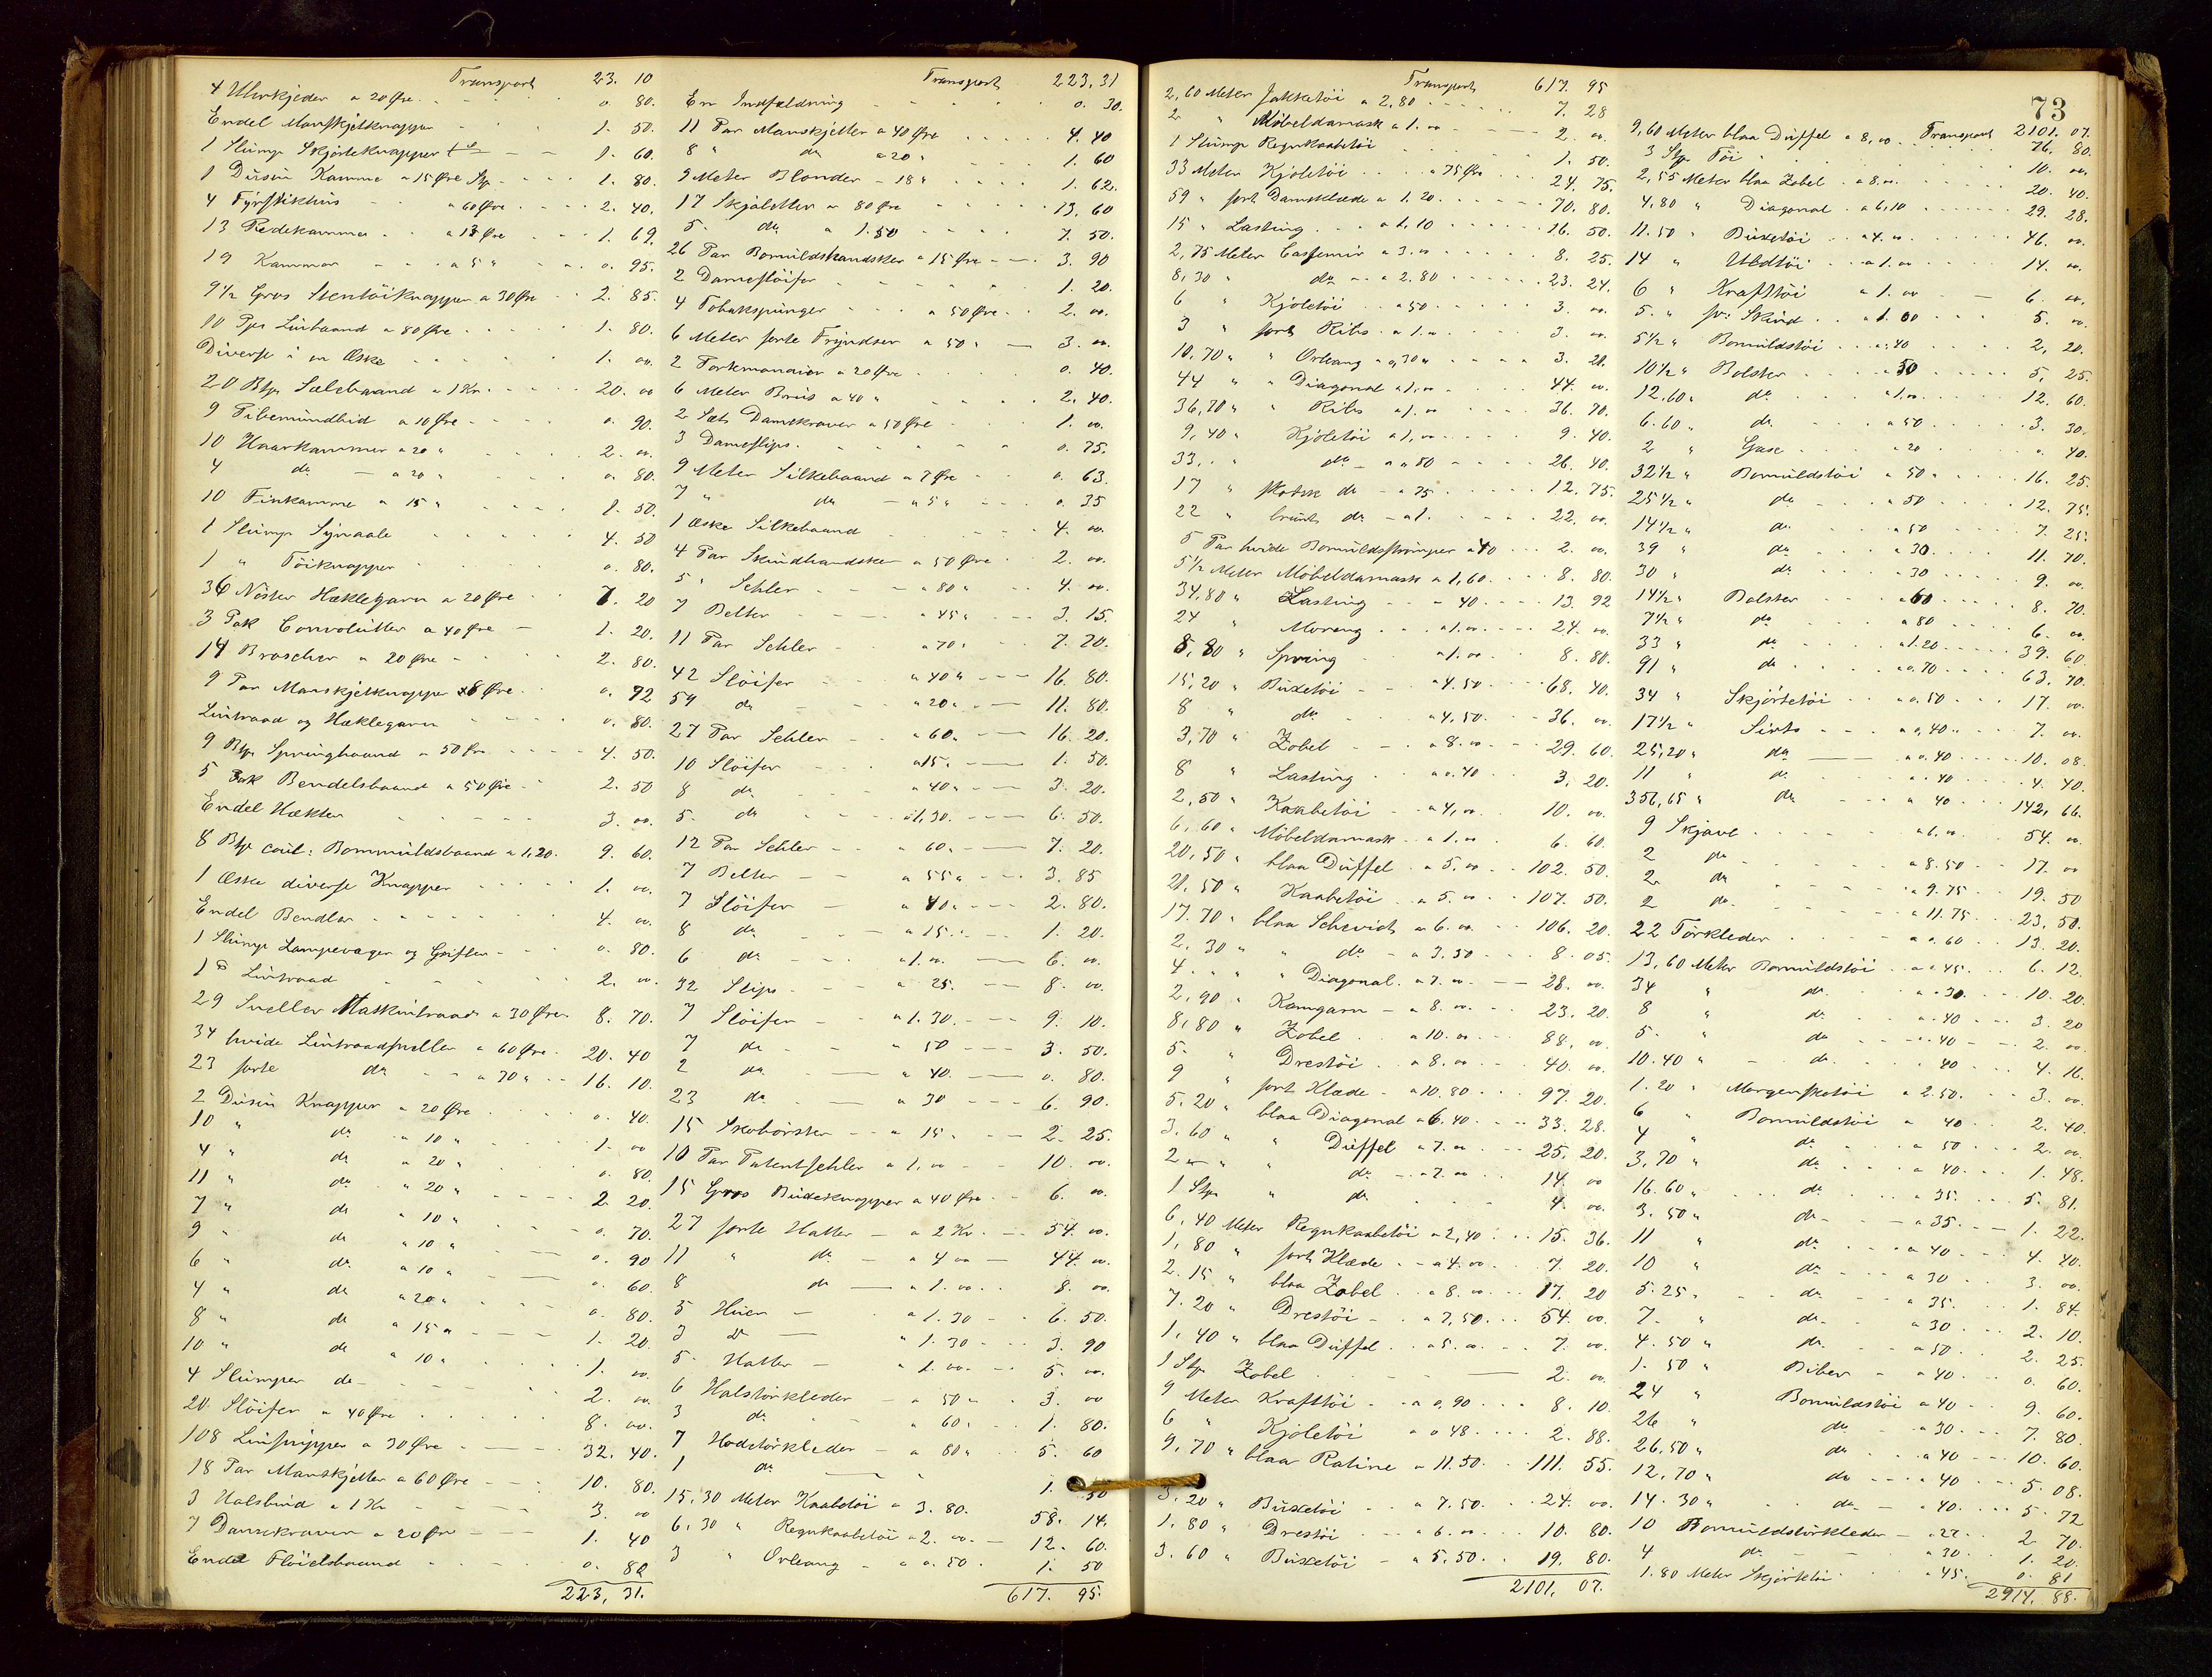 Transport 23. 10
4 Uhrkjeder a 20 Øre 0. 80.
Endel Manskjetknapper 1. 50.
1 Slump Skjorteknapper 1. 60.
1 Dusin Kamme a 15 Øre Stp. 1. 80.
4 Fyrstikhus a 60 Øre 2. 40.
13 Redekamme a 13 Øre 1. 69.
19 Kammer a 5 " 0. 95.
9 1/2 Gros Stentöiknapper a 30 Øre 2. 85.
10 Pjes Linbaand a 80 Øre 1. 80.
Diverse i en Æske 1. 00.
20 Stp. Sælebaand a 1 Kr. 20. 00
9 Pibemundbid a 10 Øre 0. 90.
10 Haarkammer a 20 " 2. 00.
4 do a 20 " 0. 80.
10 Finkamme a 15 " 1. 50.
1 Slump Synaale 4. 50
1 " Töiknapper 0. 80.
36 Nöster Hæklegarn a 20 Øre 7. 20
3 Pak Convolutter a 40 Øre 1. 20.
14 Broscher a 20 Øre 2. 80.
9 Par Manskjetknapper a 8 Øre 0. 72
Lintraad og Hæklegarn 0. 80.
9 Stp. Springbaand a 50 Øre 4. 50.
5 Pak Bendelsbaand a 50 Øre 2. 50
Endel Hækter 3. 00.
8 Stp. coul: Bommuldsbaand a 1,20. 9. 60.
1 Æske diverse Knapper 1. 00.
Endel Bendler 4. 00.
1 Slump Lampevæger og Grifler 0. 80.
1 P Lintraad 2. 00.
29 Sneller Maskintraad a 30 Øre 8. 70.
34 hvide Lintraadsneller a 60 Øre 20. 40
23 sorte do a 70 " 16. 10.
2 Dusin Knapper a 20 Øre 0. 40.
10 " do a 10 " 1. 00
4 " do a 20 " 0. 80.
11 " do a 20 " 2. 20.
7 " do a 10 " 0. 70.
9 " do a 10 " 0. 90
6 " do a 10 " 0. 60.
4 " do a 20 " 0. 80.
8 " do a 15 " 1. 20.
10 " do a 10 " 1. 00.
4 Slumper do 2. 00.
20 Slöifer a 40 Øre 8. 00.
108 Linsnipper a 30 Øre 32. 40.
18 Par Manskjetter a 60 Øre 10. 80.
3 Halsbind a 1 Kr 3. 00
7 Damekraver a 20 Øre 1. 40
Endel Flöielsbaand 0. 80
223, 31.
Transport 223, 31
En Indfældning 0. 30.
11 Par Manskjetter a 40 Øre 4. 40
8 " do a 20 " 1. 60
9 Meter Blonder - 18 " 1. 62.
17 Skjaletter a 80 Øre 13. 60
5 do a 1.50 7. 50.
26 Par Bomuldshandsker a 15 Øre 3. 90
2 Damesløifer 1. 20.
4 Tobakspunger a 50 Øre 2. 00.
6 Meter sorte Fryndser a 50 " 3. 00.
2 Portemonaier a 20 Øre 0. 40.
6 Meter Brus a 40 " 2. 40.
2 Sæt Damekraver a 50 Øre 1. 00.
3 Dameslips 0. 75.
9 Meter Silkebaand a 7 Øre 0. 63.
7 " do a 5 " 0. 35
1 Æske Silkebaand 4. 00.
4 Par Skindhandsker a 50 Øre 2. 00.
5 " Sehler a 80 " 4. 00.
7 Belter a 45 " 3. 15.
11 Par Sehler a 70 " 7. 70.
42 Slöifer a 40 " 16. 80.
59 do a 20 " 11. 80.
27 Par Sehler a 60 " 16. 20.
10 Slöifer a 15 " 1. 50.
8 do a 40 " 3. 20.
5 do a 1,30. 6. 50.
12 Par Sehler a 60 " 7. 20.
7 Belter a 55 " 3. 85
7 Slöifer a 40 " 2. 80.
8 do a 15 " 1. 20.
6 do a 1.00. 6. 00.
32 Slips a 25. 8. 00.
7 Slöifer a 1.30. 9. 10.
7 do " 50 3. 50.
2 do a 40. 0. 80.
23 do a 30 6. 90.
15 Skobørster a 15 " 2. 25.
10 Par Patentsehler a 1,00 10. 00.
15 Gros Buxeknapper a 40 Øre 6. 00.
27 sorte Hatter a 2 Kr. 54. 00.
11 " do a 4 00 44. 00.
8 do a 1.00. 8. 00.
5 Huer a 1.30 6. 50.
3 do " 1.30 3. 90
5 Hatter " 1.00. 5. 00.
6 Halstörkleder a 50 " 3. 00
3 do a 60 " 1. 80.
7 Hodetörkleder a 80 " 5. 60
1 do " 1. 50
15,30 Meter Kaabetöi a 3.80. 58. 14.
6,30 " Regnkaabetöi a 2.00. 12. 60.
3 " Orleang a 0.50. 1. 50
617. 95.
Transport 617. 95
2,60 Meter Jakketöi a 2,80 7. 28
2 " Möbeldamask a 1.00 2. 00.
1 Slump Regnkaabetöi 1. 50.
33 Meter Kjoletöi a 75 Øre 24. 75.
59 " sort Dameklæde a 1.20. 70. 80.
15 " Lasting a 1,10 16. 50.
2,75 Meter Casemir a 3.00 8. 25.
8,30 " do a 2.80 23. 24.
6 " Kjoletöi a 50 3. 00.
3 " sort Ribs a 1.00 3. 00.
10,70 " " Orleang a 0,30 " 3. 21.
44 " " Diagonal a 1,00 44. 00.
36,70 " " Ribs a 1.00 36. 70.
9,40 " Kjoletöi a 1,00 9. 40.
33. " do a 0 80 26. 40.
17 " skotsk do a 75 12. 75.
22 " brunt do a 1. 22. 00.
5 Par hvide Bomuldsstrømper a 40 2. 00.
5 1/2 Meter Möbeldamask a 1,60. 8. 80.
34.80 " Lasting 40 13. 92
24 " Moreng a 1.00 24. 00.
8,80 " Spring a 1.00 8. 80.
15,20 " Buxetöi a 4.50 68. 40.
8 " do a 4,50. 36. 00.
3,70 " Zobel a 8.00 29. 60.
8 " Lasting a 0.40 3. 20.
2,50 " Kaabetöi a 4,00. 10. 00.
6,60 " Möbeldamask a 1.00 6. 60.
20,50 " blaa Düffel a 5.00 102. 50.
21.50 " Kaabetöi a 5.00 107. 50.
17.70 " blaa Scheviot a 6.00. 106. 20.
2.30 " " do a 3.50 8. 05.
4. " " Diagonal a 7.00. 28. 00.
2,90 " Kamgarn a 8.00. 23. 20.
8,80 " Zobel a 10.00. 88, 00.
5 " Drestöi a 8.00. 40. 00.
9 " sort Klæde a 10.80 97. 20.
5.20 " blaa Diagonal a 6.40. 33. 28.
3.60 " " Düffel a 7.00 25. 20.
2 " " do a 7.00 14 00
1 Stp. " do 4. 00.
6,40 Meter Regnkaabetöi a 2,40 15. 36.
1,80 " sort Klæde a 4.00. 7. 20.
2.15 " blaa Zobel a 8.00. 17. 20
7.20 " Drestöi a 7,50. 54. 00.
1,40 " blaa Düffel a 5.00. 7. 00.
1 Stp. Zobel 2. 00.
9 Meter Krafttöi a 0,90 8. 10.
6 " Kjoletöi a 0 48 2. 88.
9,70 " blaa Ratine a 11.50. 111. 55.
3.20 " Buxetöi a 7.50. 24. 00.
1.80 " Drestöi a 6.00. 10. 80.
3.60 " Buxetöi a 5,50. 19. 80.
2101, 07.
73
Transport 2101. 07.
9,60 Meter blaa Düffel a 8,00 76. 80.
3 Stp. Töi 10. 00.
2,55 Meter blaa Zobel a 8.00 20. 40.
4,80 " Diagonal a 6,10 29. 28.
11.50 " Buxetöi a 4.00. 46. 00.
14 " Uldtöi a 1.00 14. 00.
6 " Krafttöi a 1.00 6. 00.
5. " Skind a 1.00 5. 00.
5 1/2 " Bomuldstöi a 40 2, 20.
10 1/2 " Bolster a 50 5, 25.
12,60 " do a 1.00. 12. 60.
6.60 " do a 50 3. 30.
2 " Gase a 20 0. 40.
32 1/2 " Bomuldstöi a 50 " 16. 25.
25 1/2 " do a 50 12. 75.
14 1/2 " do a 50 7. 25.
39 " do a 30. 11. 70.
30 " do a 30 9. 00.
14 1/2 " Bolster a 60 8. 70.
7 1/2 " do a 80 6. 00.
33 " do a 1.20. 39. 60.
91 " do a 0.70 63. 70.
34 " Skjörtetöi a 0.50 17. 00.
17 1/2 " Sirts a 0,40 7. 00.
25,20 " do a 0.40 10. 08.
11 " do a 40 4. 40.
356,65 " do a 40 142, 66.
9 Skjave a 6.00. 54. 00.
2 do a 8.50 17. 00
2 do a 9.75 19. 50
2 do a 11.75 23, 50.
22 Törkleder a 0.60 13. 20.
13,60 Meter Bomuldstöi a 0 45. 6. 12.
34 " do a 30. 10. 20.
8 " do a 40 3. 20
5. " do a 40 2. 00.
10.40 " do a 40 4. 16.
1.20 " Morgenskotöi a 2.50. 3. 00.
6 " Bomuldstöi a 40 2. 40.
4 " do a 50 2. 00.
3,70 " do a 40. 1. 48.
16.60 " do a 35. 5. 81.
3.50 " do a 35. 1. 22.
11 " do a 40 4. 40.
10 " do a 30 3. 00.
5.25 " do a 35. 1. 84.
7. " do a 30 2. 10.
4.50 " do a 50 2. 25.
1.50 " Biber a 40 0. 60.
24 " Bomuldstöi a 40 9. 60.
26 " do a 30 7. 80.
26,50 " do a 40 10. 60.
12,70 " do a 40 5. 08.
14.30 " do a 40. 5. 72
10 Bomuldstörkleder a 27. 2. 70.
4 do a 30. 1. 20.
1.80 Meter Skjörtetöi a 45. 0. 81
2914. 88.